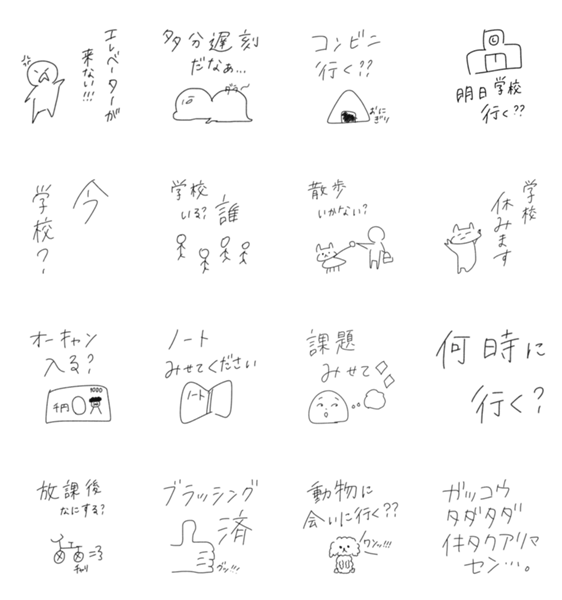 エレベーターが
来ない!!!
多分遅刻
だなぁ…
コンビニ
行く??
おに
ぎり
明日学校
行く??
今
学校?
学校
いる?
誰
散歩
いかない?
学校
休みます
オーキャン
入る?
1000
千円
ノート
みせてください
ノート
課題
みせて
何時に
行く?
放課後
なにする?
チャリ
ブラッシング
済
グッ!!!
動物に
会いに行く??
ワンッ!!!
ガッコウ
タダタダ
イキタクアリマ
セン…。